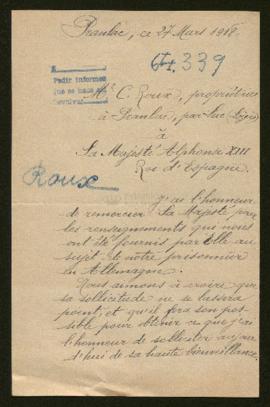 Praulac, ce 27 Mars 1918.
339
Pedir informes
que se hace en
Mr C. Roux, propriétaire
à Praulac, par Luc (Lozère)
à
Sa Majesté Alphonse XIII
Roi d'Espagne.
Roux
J'ai l'honneur
de remercier Sa Majesté pour
les renseignements que nous
ont été fournis par Elle au
sujet de notre prisonnier
en Allemagne.
Nous aimons à croire que
sa sollicitude ne se lassera
point, et qu'il fera son pos-
sible pour obtenir ce que j'ai
l'honneur de solliciter aujour
d'hui de sa haute bienveillance.